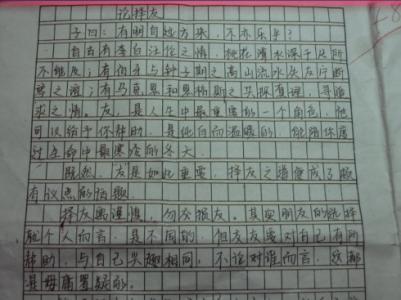 论择友
子曰：有朋自远方来，不亦乐乎？
自古有李白汪伦之情，桃花潭水深千尺所
不能及；有伯牙与钟子期之高山流水
之谊；有马克思和恩格斯之共探真理，寻
求之情。友，是人生中最重要的一个角色，他
可以给予你帮助，是纯白而温暖的，能陪你度
过生命中最寒冷的冬天。
既然，友是如此重要，择友之道便成了颇
有议点的话题。
择友需谨慎，勿交损友。其实朋友的选择
就个人而言，是不同的，但交友要对自己有所
帮助，与自己兴趣相同，不论对谁而言，这都
是毋庸置疑的。